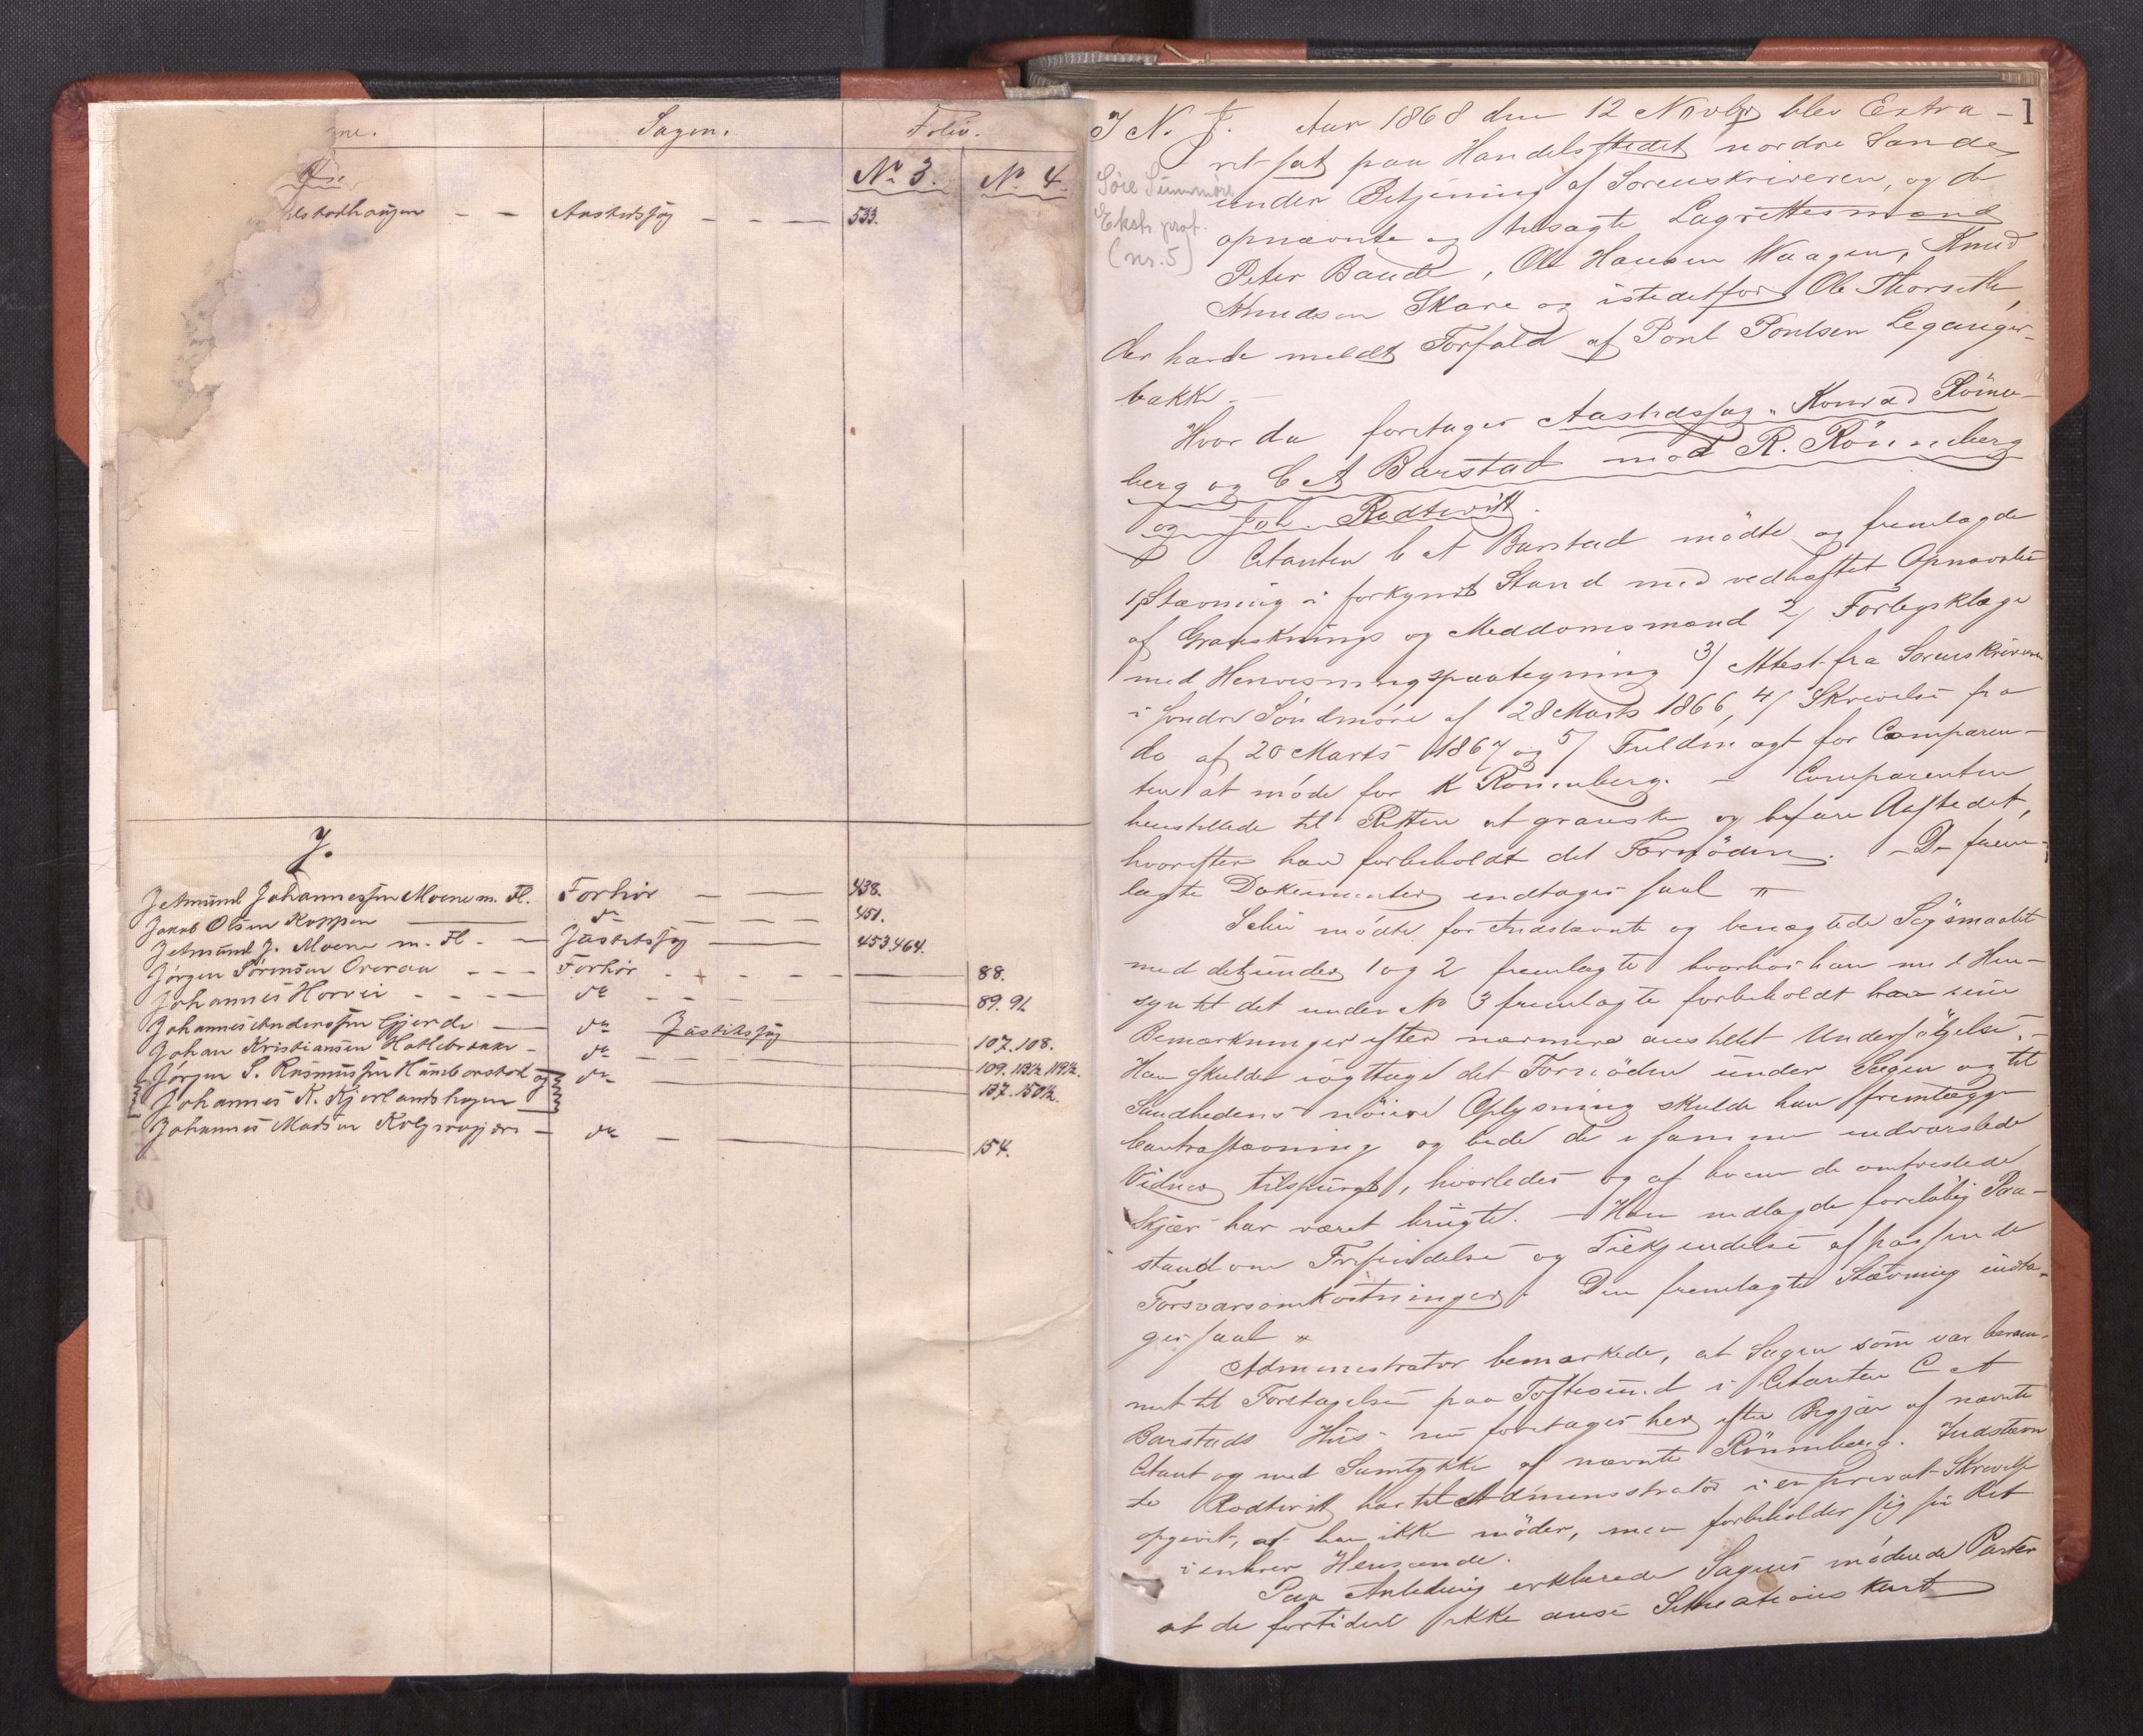 Sagen.
Folio.
No 3.
No 4.
Aastedssag
533.
J.
Jetmund Johannessen Moene m. Fl.
Forhör
438.
Jakob Olsen Koppen
do
451.
Jetmund J. Moene m. Fl.
Justitssag
453 464.
Jörgen Sörensen Overaa
Forhör
88.
Johannes Horvei
do
89. 91.
Johannes Andersen Gjerde
do
Justitssag
107. 108.
Johan Kristiansen Hatlebrække
do
109. 113½ 119½.
Jörgen S. Rasmussen Humborstad og
do
137. 150½.
Johannes K. Kjerlandshagen
Johannes Madsen Kolgrovgjære
do
154.
1
I N. J. Aar 1868 den 12 Novbr blev Extra-
ret sat paa Handelsstedet nordre Sande
under Betjening af Sorenskriveren, og de
opnævnte og tilsagte Lagrettesmænd
Peter Baade, Ole Hansen Waagen, Knud
Knudsen Skare og istedetfor Ole Thorseth,
der havde meldt Forfald af Poul Poulsen Leganger-
bakke.
Søre Sunnmøre
Ekstr. prot.
(nr. 5)
Hvor da foretages Aastedssag, Konrad Rönne-
berg og C A Barstad mod R. Rönneberg
og Joh. Rødtevitt.
Citanten C A Barstad mödte og fremlagde
1/ Stævning i forkyndt Stand med vedhæftet Opnævnelse
af Gransknings og Meddomsmænd 2/ Forligsklage
med Henvisningspaategning 3/ Attest fra Sorenskriveren
i söndre Söndmöre af 28 Marts 1866, 4/ Skrivelse fra
do af 20 Marts 1867 og 5/ Fuldmagt for Comparen-
ten at möde for K Rönneberg. – Comparenten
henstillede til Retten at granske og befare Aastedet,
hvorefter han forbeholdt det Fornödne. – De frem-
lagte Dokumenter indtages saal "
mödte for Indstævnte og benægtede Sögsmaalet
med det under 1 og 2 fremlagte hvorhos han med Hen-
syn til det under No 3 fremlagte forbeholdt sine
Bemærkninger efter nærmere anstillet Undersögelse. –
Han skulde iagttage det Fornödne under Sagen og til
Sandhedens nöiere Oplysning skulde han fremlægge
Contrastævning og bede de i samme indvarslede
Vidner tilspurgt, hvorledes og af hvem de omtvistede
Skjær har været brugte. – Han nedlagde foreløbig Paa-
stand om Frifindelse og Tilkjendelse af passende
Forsvarsomkostninger. Den fremlagte Stævning indta-
ges saal "
Administrator bemærkede, at Sagen som var beram-
met til Foretagelse paa Toftesund i Citanten C A
Barstads Hus nu foretages her efter Begjær af nævnte
Citant og med Samtykke af nævnte Rönneberg. Indstævn
te Rødtevitt har til Administrator i en privat Skrivelse
opgivet, at han ikke möder, men forbeholder sig sin Ret
i enhver Henseende.
Paa Anledning erklærede Sagens mödende Parter
at de fortiden ikke anse Situationskart